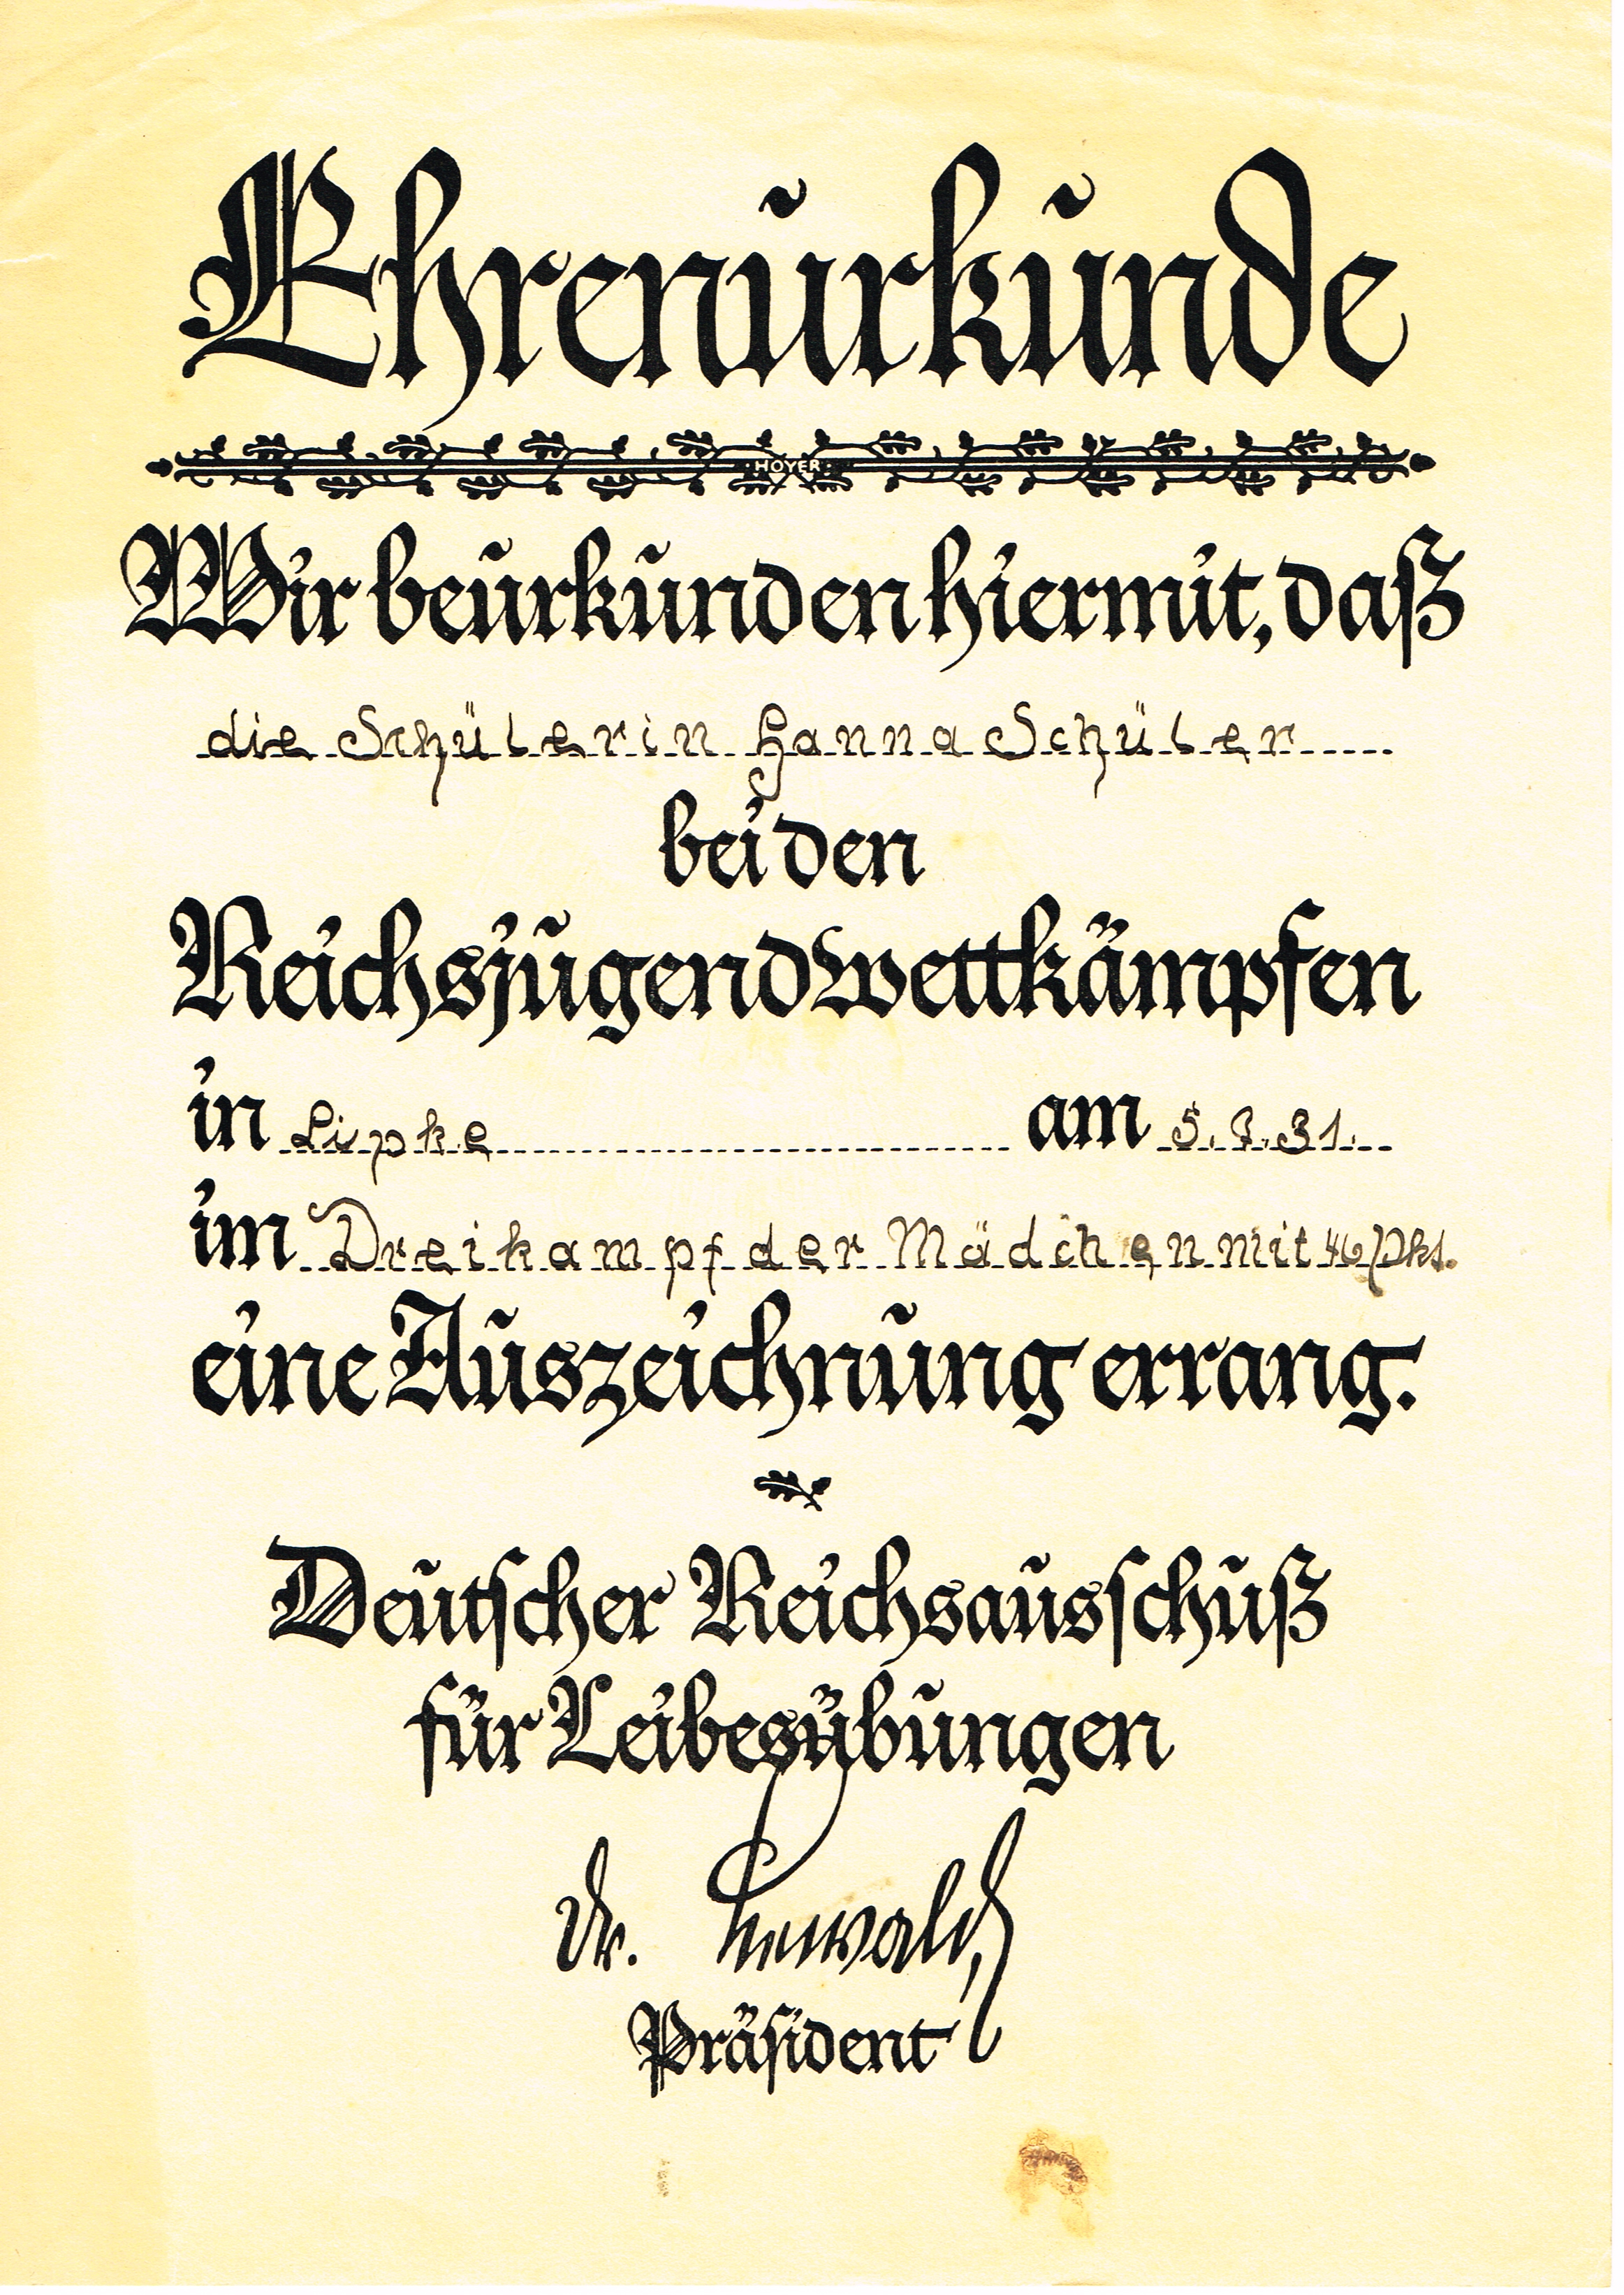 Ehrenurkunde
HOYER
Wir beurkunden hiermit, daß
die Schülerin Hanna Schüler
bei den
Reichsjugendwettkämpfen
in Lipke am 5.7.31.
im Dreikampf der Mädchen mit 46 Pkt.
eine Auszeichnung errang.
Deutscher Reichsausschuß
für Leibesübungen
Dr. Lewald
Präsident